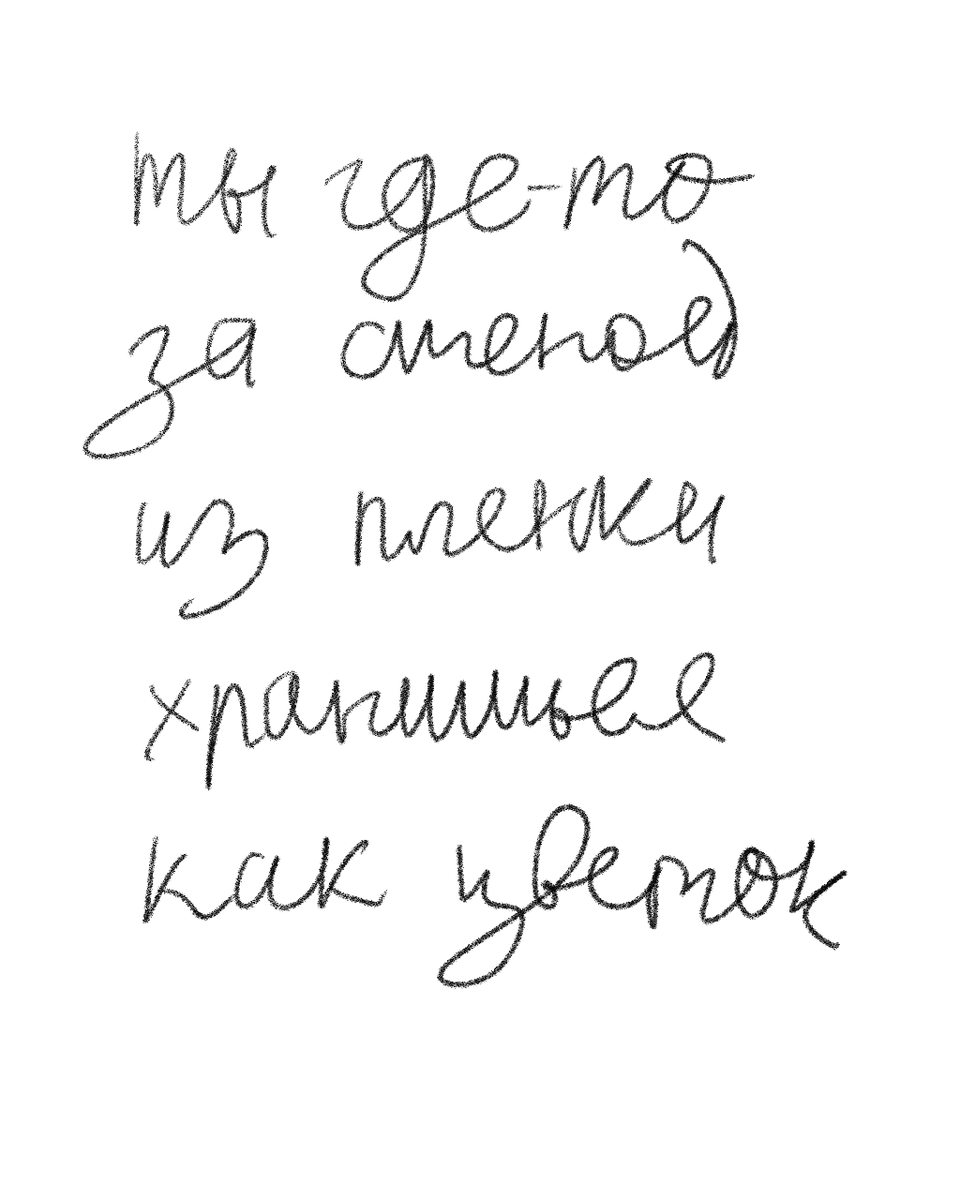 ты где-то
за стеной
из пленки
хранишься
как цветок